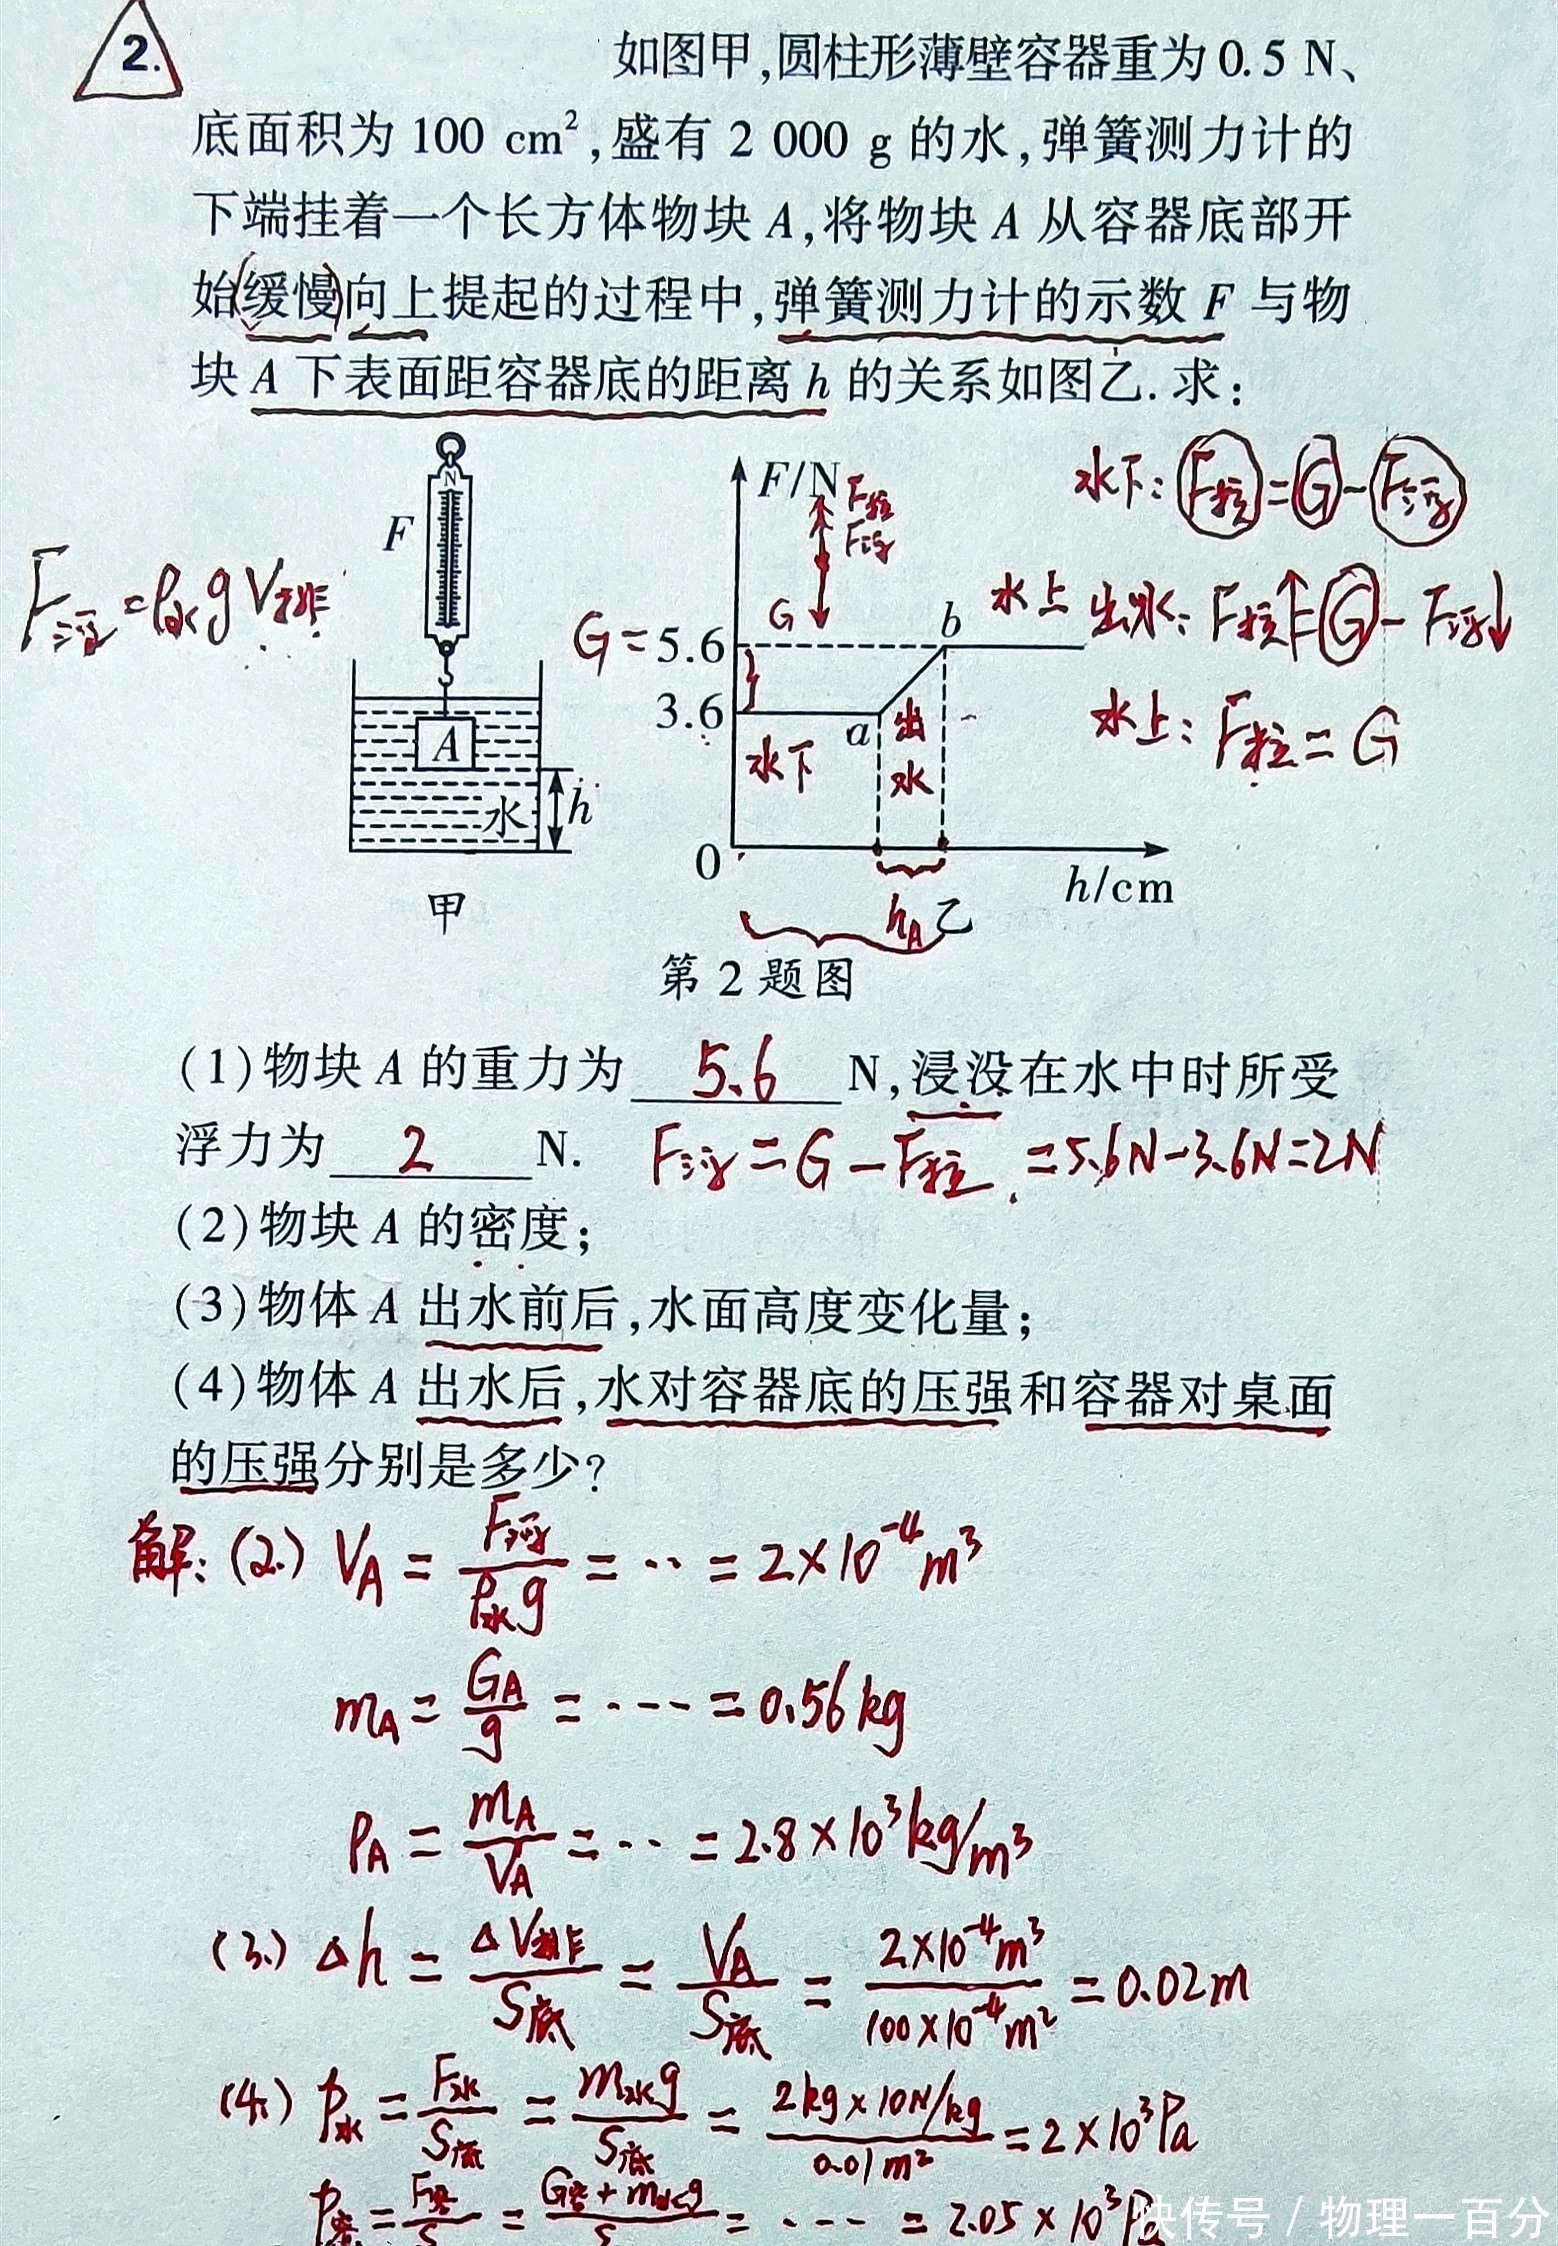 2.
如图甲,圆柱形薄壁容器重为0.5 N、
底面积为 100 cm²,盛有 2 000 g 的水,弹簧测力计的
下端挂着一个长方体物块 A,将物块 A 从容器底部开
始(缓慢)向上提起的过程中,弹簧测力计的示数 F 与物
块 A 下表面距容器底的距离 h 的关系如图乙.求:
F浮=ρ水gV排
F
N
A
水
h
甲
F/N
F拉
F浮
G
G=5.6
3.6
0
a
b
水下
出水
水上
h/cm
hA
乙
水下:F拉=G-F浮
出水:F拉↑=G-F浮↓
水上:F拉=G
第 2 题图
(1)物块 A 的重力为 5.6 N,浸没在水中时所受
浮力为 2 N. F浮=G-F拉=5.6N-3.6N=2N
(2)物块 A 的密度;
(3)物体 A 出水前后,水面高度变化量;
(4)物体 A 出水后,水对容器底的压强和容器对桌面
的压强分别是多少?
解:(2.) VA = F浮/ρ水g = ·· = 2×10⁻⁴m³
mA = GA/g = ···· = 0.56kg
ρA = mA/VA = ··· = 2.8×10³kg/m³
(3.) Δh = ΔV排/S底 = VA/S底 = 2×10⁻⁴m³/100×10⁻⁴m² = 0.02m
(4.) p水 = F水/S底 = m水g/S底 = 2kg×10N/kg/0.01m² = 2×10³Pa
p容 = F容/S = G容+m水g/S = ···· = 2.05×10³Pa
快传号 / 物理一百分